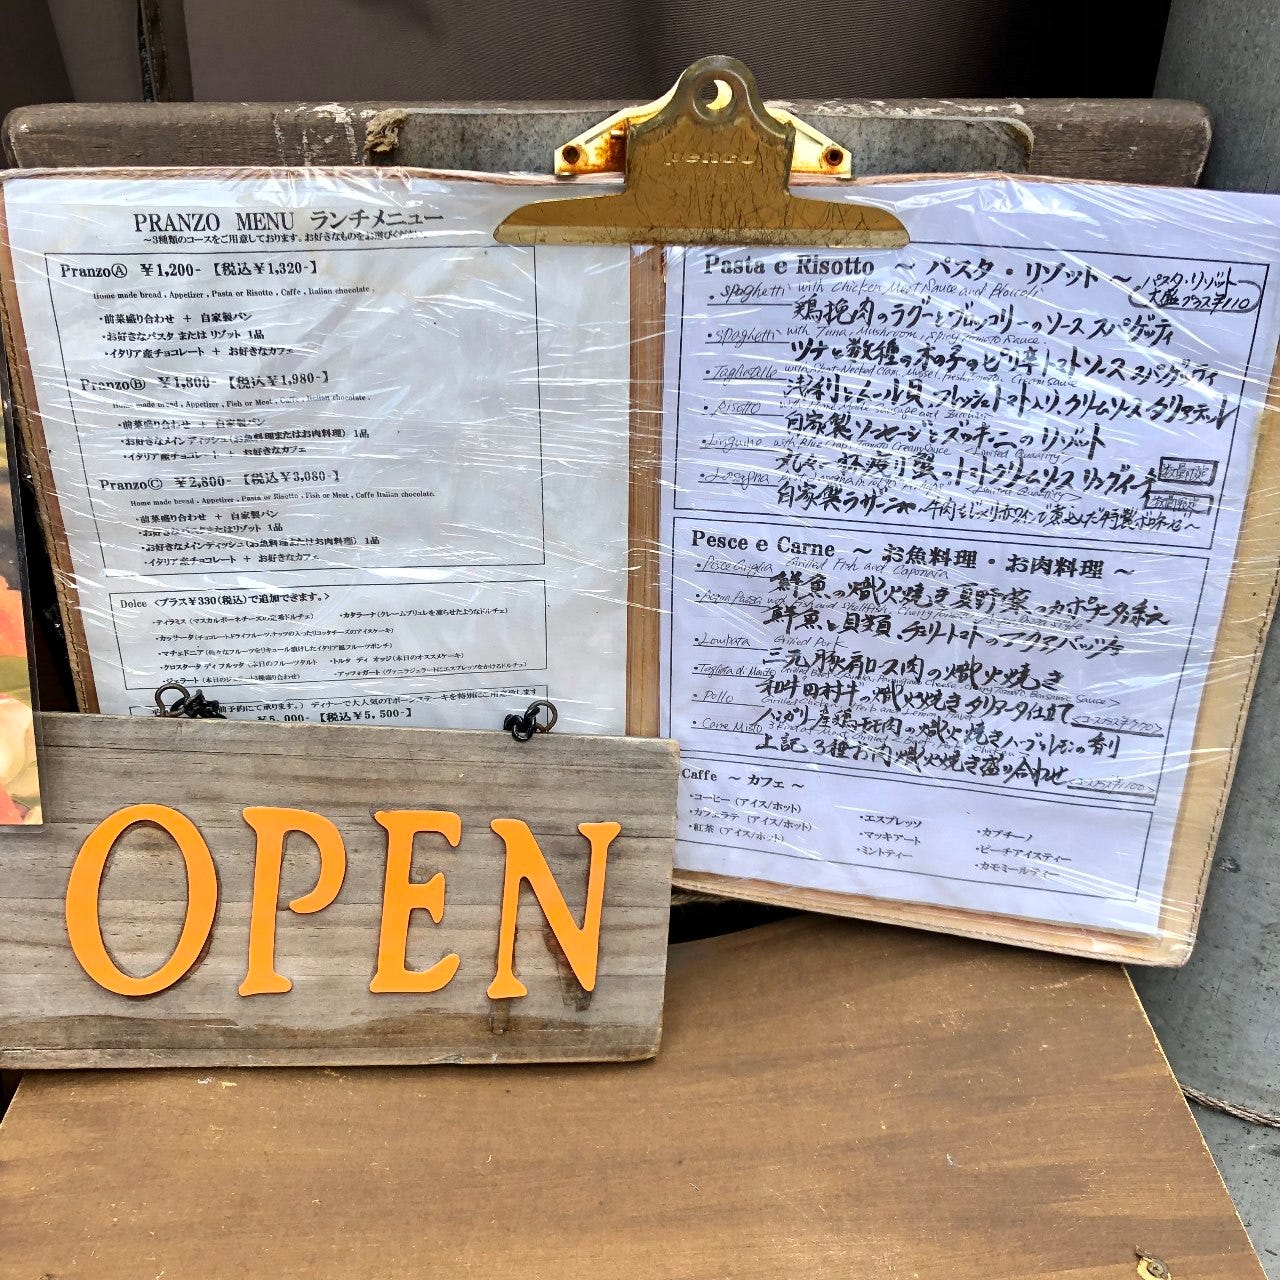 penco
PRANZO MENU ランチメニュー
～3種類のコースをご用意しております。お好きなものをお選びください。
PranzoⒶ ￥1,200-【税込￥1,320-】
Home made bread , Appetizer , Pasta or Risotto , Caffe , Italian chocolate .
・前菜盛り合わせ + 自家製パン
・お好きなパスタ または リゾット 1品
・イタリア産チョコレート + お好きなカフェ
PranzoⒷ ￥1,800-【税込￥1,980-】
Home made bread , Appetizer , Fish or Meat , Caffe , Italian chocolate .
・前菜盛り合わせ + 自家製パン
・お好きなメインディッシュ(お魚料理またはお肉料理) 1品
・イタリア産チョコレート + お好きなカフェ
PranzoⒸ ￥2,800-【税込￥3,080-】
Home made bread , Appetizer , Pasta or Risotto , Fish or Meat , Caffe Italian chocolate.
・前菜盛り合わせ + 自家製パン
・お好きなパスタまたはリゾット 1品
・お好きなメインディッシュ(お魚料理またはお肉料理) 1品
・イタリア産チョコレート + お好きなカフェ
Dolce <プラス￥330(税込)で追加できます。>
・ティラミス(マスカルポーネチーズの定番ドルチェ) ・カタラーナ(クレームブリュレを凍らせたようなドルチェ)
・カッサータ(チョコレートドライフルーツナッツの入ったリコッタチーズのアイスケーキ)
・マチェドニア(色々なフルーツをリキュール漬けしたイタリア風フルーツポンチ)
・クロスタータ ディ フルッタ(本日のフルーツタルト ・トルタ ディ オッジ(本日のオススメケーキ)
・ジェラート(本日のジェラート3種盛り合わせ) ・アッフォガート(ヴァニラジェラードにエスプレッソをかけるドルチェ)
前予約にて承ります。) ディナーで大人気のTボーンステーキを特別にご用意致します
￥5,000-【税込￥5,500-】
OPEN
Pasta e Risotto ～ パスタ・リゾット ～
パスタ・リゾット
大盛プラス¥110
・Spaghetti with Chicken Meat Sauce and Broccoli
鶏挽肉のラグーとブロッコリーのソース スパゲッティ
・Spaghetti with Tuna, Mushroom, Spicy Tomato Sauce
ツナと数種の木の子のピリ辛トマトソース スパゲッティ
・Tagliatelle with Short-Necked Clam, Mussel, Fresh Tomato, Cream Sauce
浅利とムール貝、フレッシュトマト入り、クリームソース タリアテッレ
・Risotto with Home Made Sausage and Zucchini
自家製ソーセージとズッキーニのリゾット
・Linguine with Blue Crab, Tomato Cream Sauce <Limited Quantity>
のトマトクリームソース リングイーネ 数量限定
・Lasagna <Limited Quantity>
自家製ラザーニャ ～牛肉をじっくり赤ワインで煮込んだ特製ボロネーゼ～ 数量限定
Pesce e Carne ～ お魚料理・お肉料理 ～
・Pesce Griglia Grilled Fish and Caponata
鮮魚の熾火焼き 夏野菜のカポナータ添え
・Acqua Pazza with Fish and Shellfish, Cherry Tomato
鮮魚と貝類、チェリートマトのアクアパッツァ
・Lombata Grilled Pork
三元豚肩ロース肉の熾火焼き
・Tagliata di Manzo
和牛田村牛の熾火焼き タリアータ仕立て
・Pollo Grilled Chicken
ハンガリー産鶏モモ肉の熾火焼き ハーブとレモンの香り
・Carne Misto 3 Kind of Meat Grilled
上記3種お肉熾火焼き盛り合わせ
Caffe ～ カフェ ～
・コーヒー (アイス/ホット) ・エスプレッソ ・カプチーノ
・カフェラテ (アイス/ホット) ・マッキアート ・ピーチアイスティー
・紅茶 (アイス/ホット) ・ミントティー ・カモミールティー